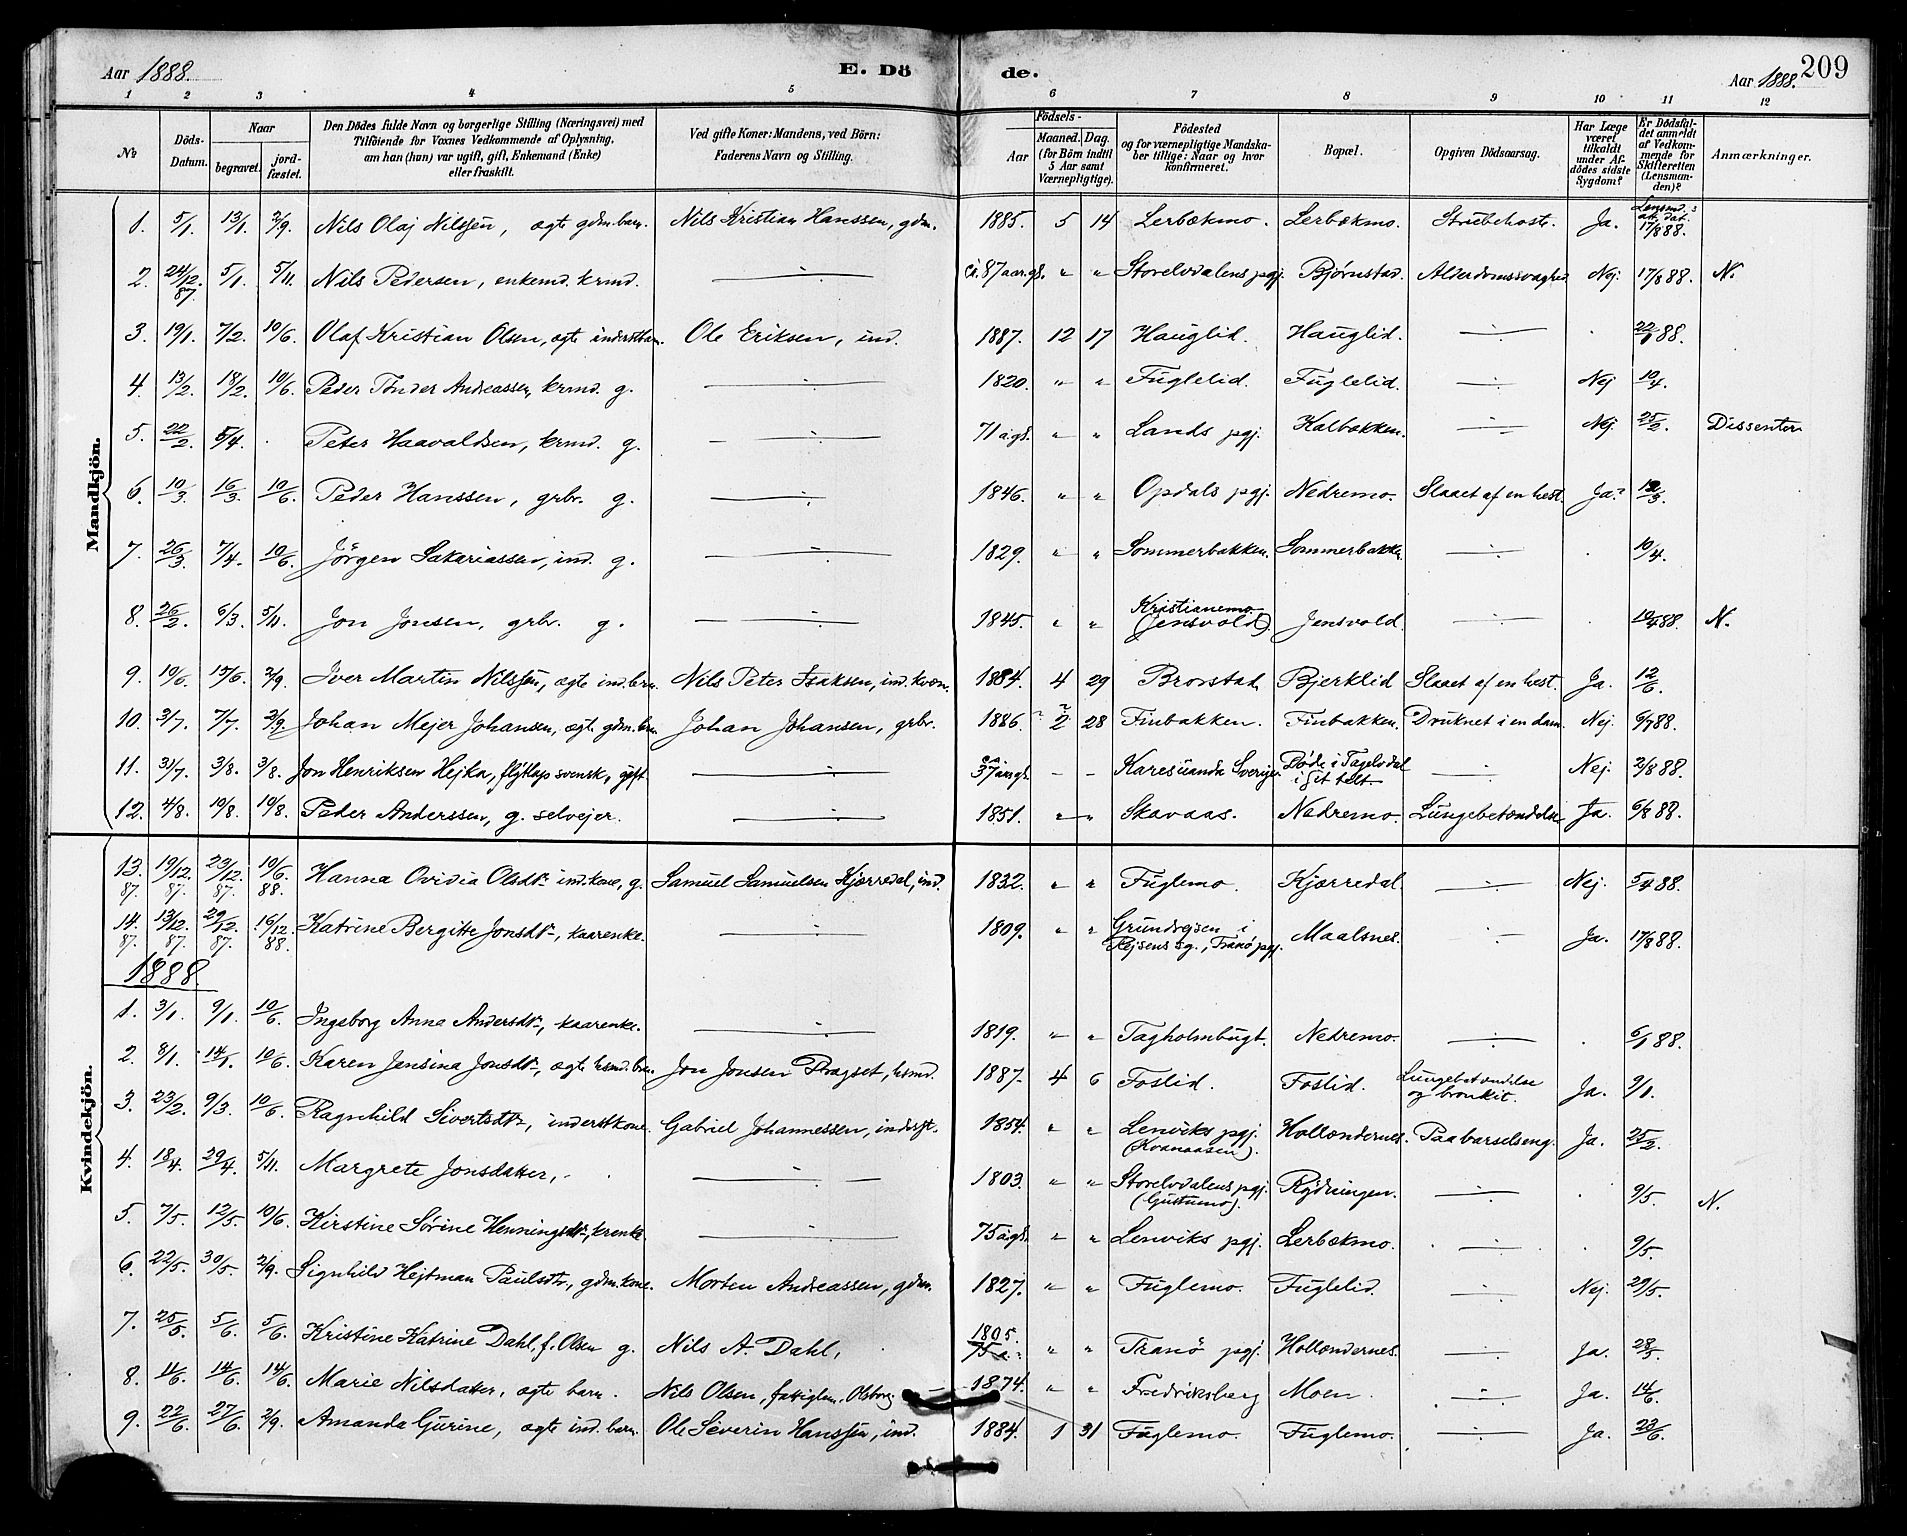 Aar 1888. E. Dö de. Aar 1888. 209
1 2 3 4 5 6 7 8 9 10 11 12
№ Döds-Datum. Naar begravet. jord-fæstet. Den Dödes fulde Navn og borgerlige Stilling (Næringsvei) med Tilföiende for Voxnes Vedkommende af Oplysning, om han (hun) var ugift, gift, Enkemand (Enke) eller fraskilt. Ved gifte Koner: Mandens, ved Börn: Faderens Navn og Stilling. Födsels- Aar Maaned. Dag. (for Börn indtil 5 Aar samt Værnepligtige). Födested og for værnepligtige Mandskaber tillige: Naar og hvor konfirmeret. Bopæl. Opgiven Dödsaarsag. Har Læge været tilkaldt under Afdödes sidste Sygdom? Er Dödsfaldet anmeldt af Vedkommende for Skifteretten (Lensmanden)? Anmærkninger.
Mandkjön.
1. 5/1. 13/1. 2/9. Nils Olaj Nilssen, ægte gdm.barn. Nils Kristian Hanssen, gdm. 1885. 5 14 Lerbækmo. Lerbækmo. Strubehoste. Ja. Lensmd.s att. dat. 17/8 88.
2. 24/12. 87. 5/1. 5/11. Nils Pedersen, enkemd. krmd. —:— ca. 87 aar gl. " " Storelvdalens pgj. Bjørnstad. Alderdomssvaghed Nej. 17/8 88. N.
3. 19/1. 7/2. 10/6. Olaf Kristian Olsen, ægte inderstbarn. Ole Eriksen, ind. 1887. 12 17 Hauglid. Hauglid. —:— . 22/1 88.
4. 13/2. 18/2. 10/6. Peder Tønder Andreassen, krmd. g. —:— 1820. " " Fuglelid. Fuglelid. —:— Nej 10/4.
5. 22/2. 5/4. . Peter Haavaldsen, krmd. g. —:— 71 a. gl. " " Lands pgj. Kalbakken. —:— Nej. 25/2. Dissenter
6. 10/3. 16/3. 10/6. Peder Hanssen, grbr. g. —:— 1846. " " Opdals pgj. Nedremo. Slaaet af en hest. Ja? 12/3.
7. 26/3. 7/4. 10/6. Jørgen Sakariassen, ind. g. —:— 1829. " " Sommerbakken. Sommerbakken —:— . 10/4.
8. 26/2. 6/3. 5/11. Jon Jonsen, grbr. g. —:— 1845. " " Kristianemo (Jensvold). Jensvold. —:— . 10/4 88. N.
9. 10/6. 15/6. 2/9. Iver Martin Nilssen, ægte ind.barn. Nils Peter Isaksen, ind. kvæn. 1884. 4 29 Brorstad Bjerklid Slaaet af en hest. Ja. 12/6.
10. 3/7. 7/7. 2/9. Johan Mejer Johansen, ægte gdm.barn. Johan Johansen, grbr. 1886. 2 28 Finbakken. Finbakken. Druknet i en dam. Nej. 6/7 88.
11. 31/7. 3/8. 3/8. Jon Henriksen Hejka, flytlap svensk, gift. —:— ca. 37 aar gl. - - Karesuanda Sverige. Døde i Tagelvdal i sit telt. —:— Nej. 2/8 88.
12. 4/8. 10/8. 10/8. Peder Anderssen, g. selvejer. —:— 1851. " " Skavaas. Nedremo. Lungebetændelse Ja. 6/8 88.
Kvindekjön.
13. 87. 19/12. 87. 23/12. 87. 10/6. 88. Hanna Ovidia Olsdtr. ind.kone, g. Samuel Samuelsen Kjærredal, ind. 1832. " " Fuglemo. Kjærredal. —:— Nej. 5/4 88.
14. 87. 13/12. 87. 29/12. 87. 16/12. 88. Katrine Bergitte Jonsdtr., kaarenke. —:— 1809. " " Grundvejsen i Rejsens sg., Tranø pgj. Maalsnes. —:— Ja. 17/8 88.
1888.
1. 3/1. 9/1. 10/6. Ingeborg Anna Andersdtr., kaarenke. —:— 1819. " " Tagholmbugt. Nedremo. —:— . 6/1 88.
2. 8/1. 14/1. 10/6. Karen Jensina Jonsdtr., ægte hsmd.barn. Jon Jonsen Kragset, hsmd. 1887. 4 6 Foslid. Foslid. Lungebetændelse og bronkit. Ja. 9/1.
3. 23/2. 9/3. 10/6. Ragnhild Sivertsdtr., inderstkone. Gabriel Johannessen, inderst. 1854. " " Lenviks pgj. (Kvanaasen). Hollendernes. Paa barselseng. Ja. 25/2.
4. 18/4. 29/4. 5/11. Margrete Jonsdatter, —:— 1803. " " Storelvdalens pgj. (Guttumo). Rydningen. —:— . 9/5. N.
5. 7/5. 12/5. 10/6. Kirstine Sørine Henningsdtr., krenke. —:— 75 a. gl. " " Lenviks pgj. Lerbækmo. —:— . 9/5.
6. 22/5. 30/5. 2/9. Signhild Hejtman Paulsdtr., gdm.kone. Morten Andreassen, gdm. 1827. " " Fuglemo. Fuglelid. —:— Nej. 29/5.
7. 25/5. 5/6. 5/6. Kristine Katrine Dahl, f. Olsen g. Nils A. Dahl, 1805. 75 a. " " Tranø pgj. Hollendernes. —:— Ja. 28/5.
8. 11/6. 14/6. 14/6. Marie Nilsdatter, ægte barn. Nils Olsen, fattiglem, Olsborg 1874. " " Fredriksberg Moen. —:— Ja. 14/6.
9. 22/6. 27/6. 2/9. Amanda Gurine, ægte ind.barn. Ole Severin Hanssen, ind. 1884. 1 31 Fuglemo. Fuglemo. —:— Ja. 23/6.